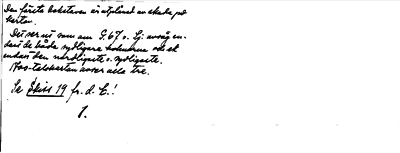 Den första bokstaven är utplånad av skada på
kartan.
Det ser ut som om G. 67 o. Lj. avsåg en-
dast de båda sydligare holmarna och ej
endast den nordligaste o. sydligaste.
kartan avser alla tre.
Se Skiss 19 fr. d. E.!
1.